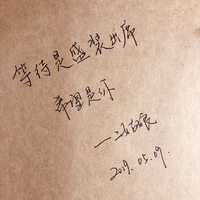 等待是盛装出席
希望是你
2019.05.09.